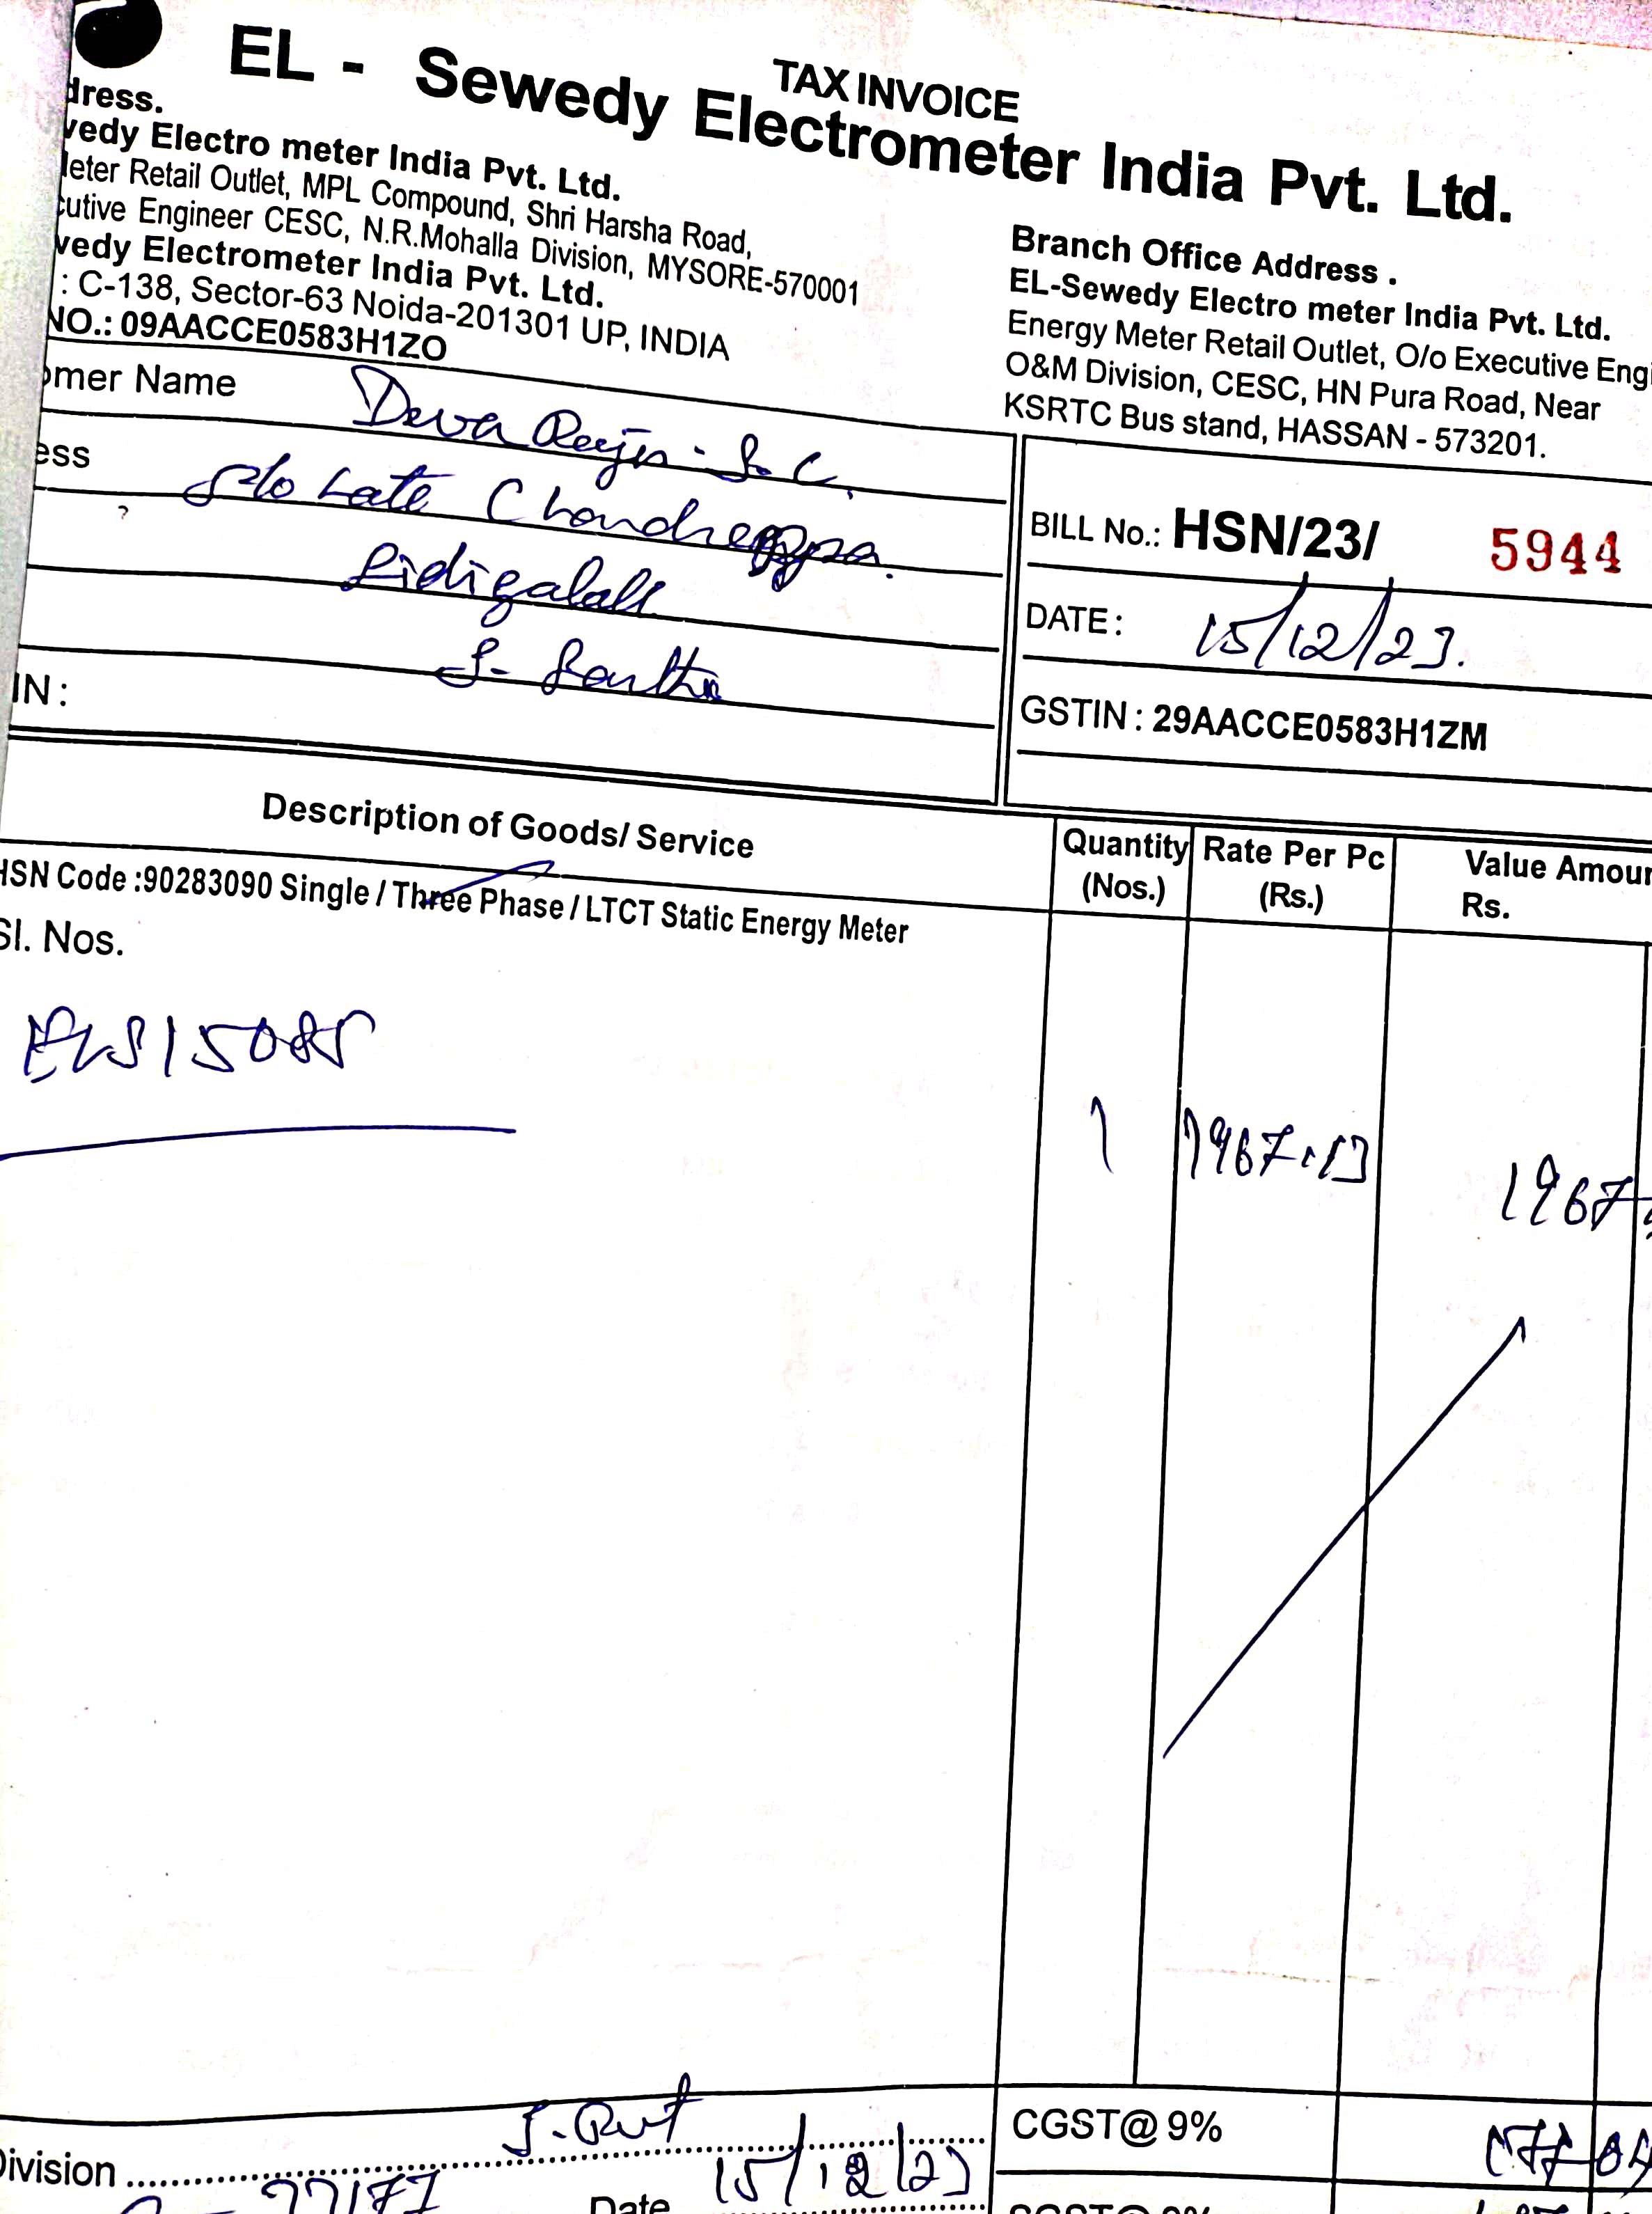 TAX INVOICE
EL - Sewedy Electrometer India Pvt. Ltd.
dress.
vedy Electro meter India Pvt. Ltd.
leter Retail Outlet, MPL Compound, Shri Harsha Road,
cutive Engineer CESC, N.R.Mohalla Division, MYSORE-570001
vedy Electrometer India Pvt. Ltd.
: C-138, Sector-63 Noida-201301 UP, INDIA
NO.: 09AACCE0583H1ZO
Branch Office Address .
EL-Sewedy Electro meter India Pvt. Ltd.
Energy Meter Retail Outlet, O/o Executive Engi
O&M Division, CESC, HN Pura Road, Near
KSRTC Bus stand, HASSAN - 573201.
omer Name Deva S. C.
ess S/o Late
IN :
BILL No.: HSN/23/ 5944
DATE : 15/12/23.
GSTIN : 29AACCE0583H1ZM
Description of Goods/ Service Quantity (Nos.) Rate Per Pc (Rs.) Value Amour Rs.
HSN Code :90283090 Single / Three Phase / LTCT Static Energy Meter
Sl. Nos.
1 1967.13 1967
CGST@ 9%
Division
Date 15/12/23